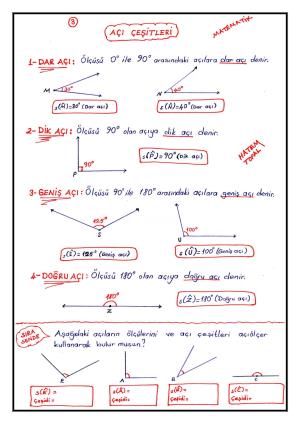 3
AÇI ÇEŞİTLERİ
MATEMATİK
1- DAR AÇI: Ölçüsü 0° ile 90° arasındaki açılara dar açı denir.
M 30° N 40°
s(M̂) = 30° (Dar açı) s(N̂) = 40° (Dar açı)
2- DİK AÇI: Ölçüsü 90° olan açıya dik açı denir.
90°
P
s(P̂) = 90° (Dik açı)
3- GENİŞ AÇI: Ölçüsü 90° ile 180° arasındaki açılara geniş açı denir.
125° 100°
S U
s(Ŝ) = 125° (Geniş açı) s(Û) = 100° (Geniş açı)
4- DOĞRU AÇI: Ölçüsü 180° olan açıya doğru açı denir.
180°
Z
s(Ẑ) = 180° (Doğru açı)
SIRA SENDE
Aşağıdaki açıların ölçülerini ve açı çeşitleri açıölçer
kullanarak bulur musun?
K A B C
s(K̂) = s(Â) = s(B̂) = s(Ĉ) =
Çeşidi = Çeşidi = Çeşidi = Çeşidi =